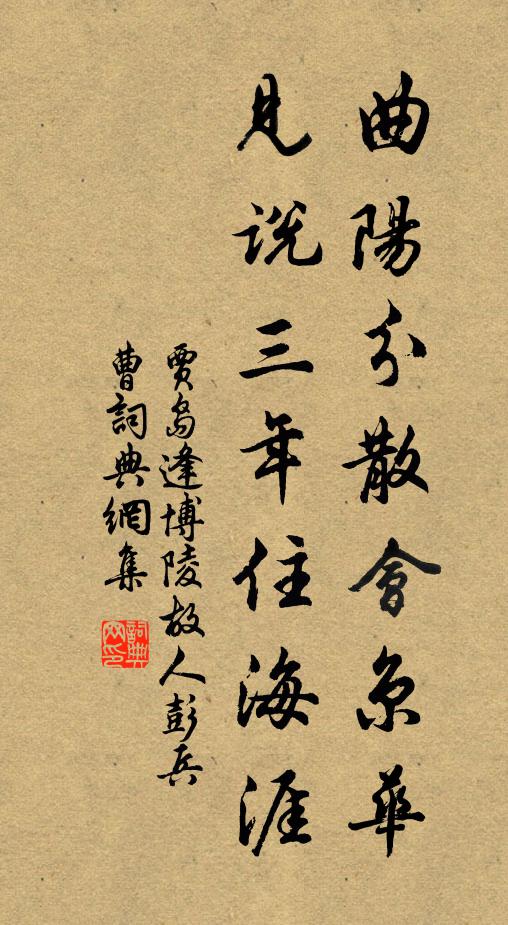 曲陽分散會京華
見說三年住海涯
賈島逢博陵故人彭兵
曹詞典網集
詞典
网印